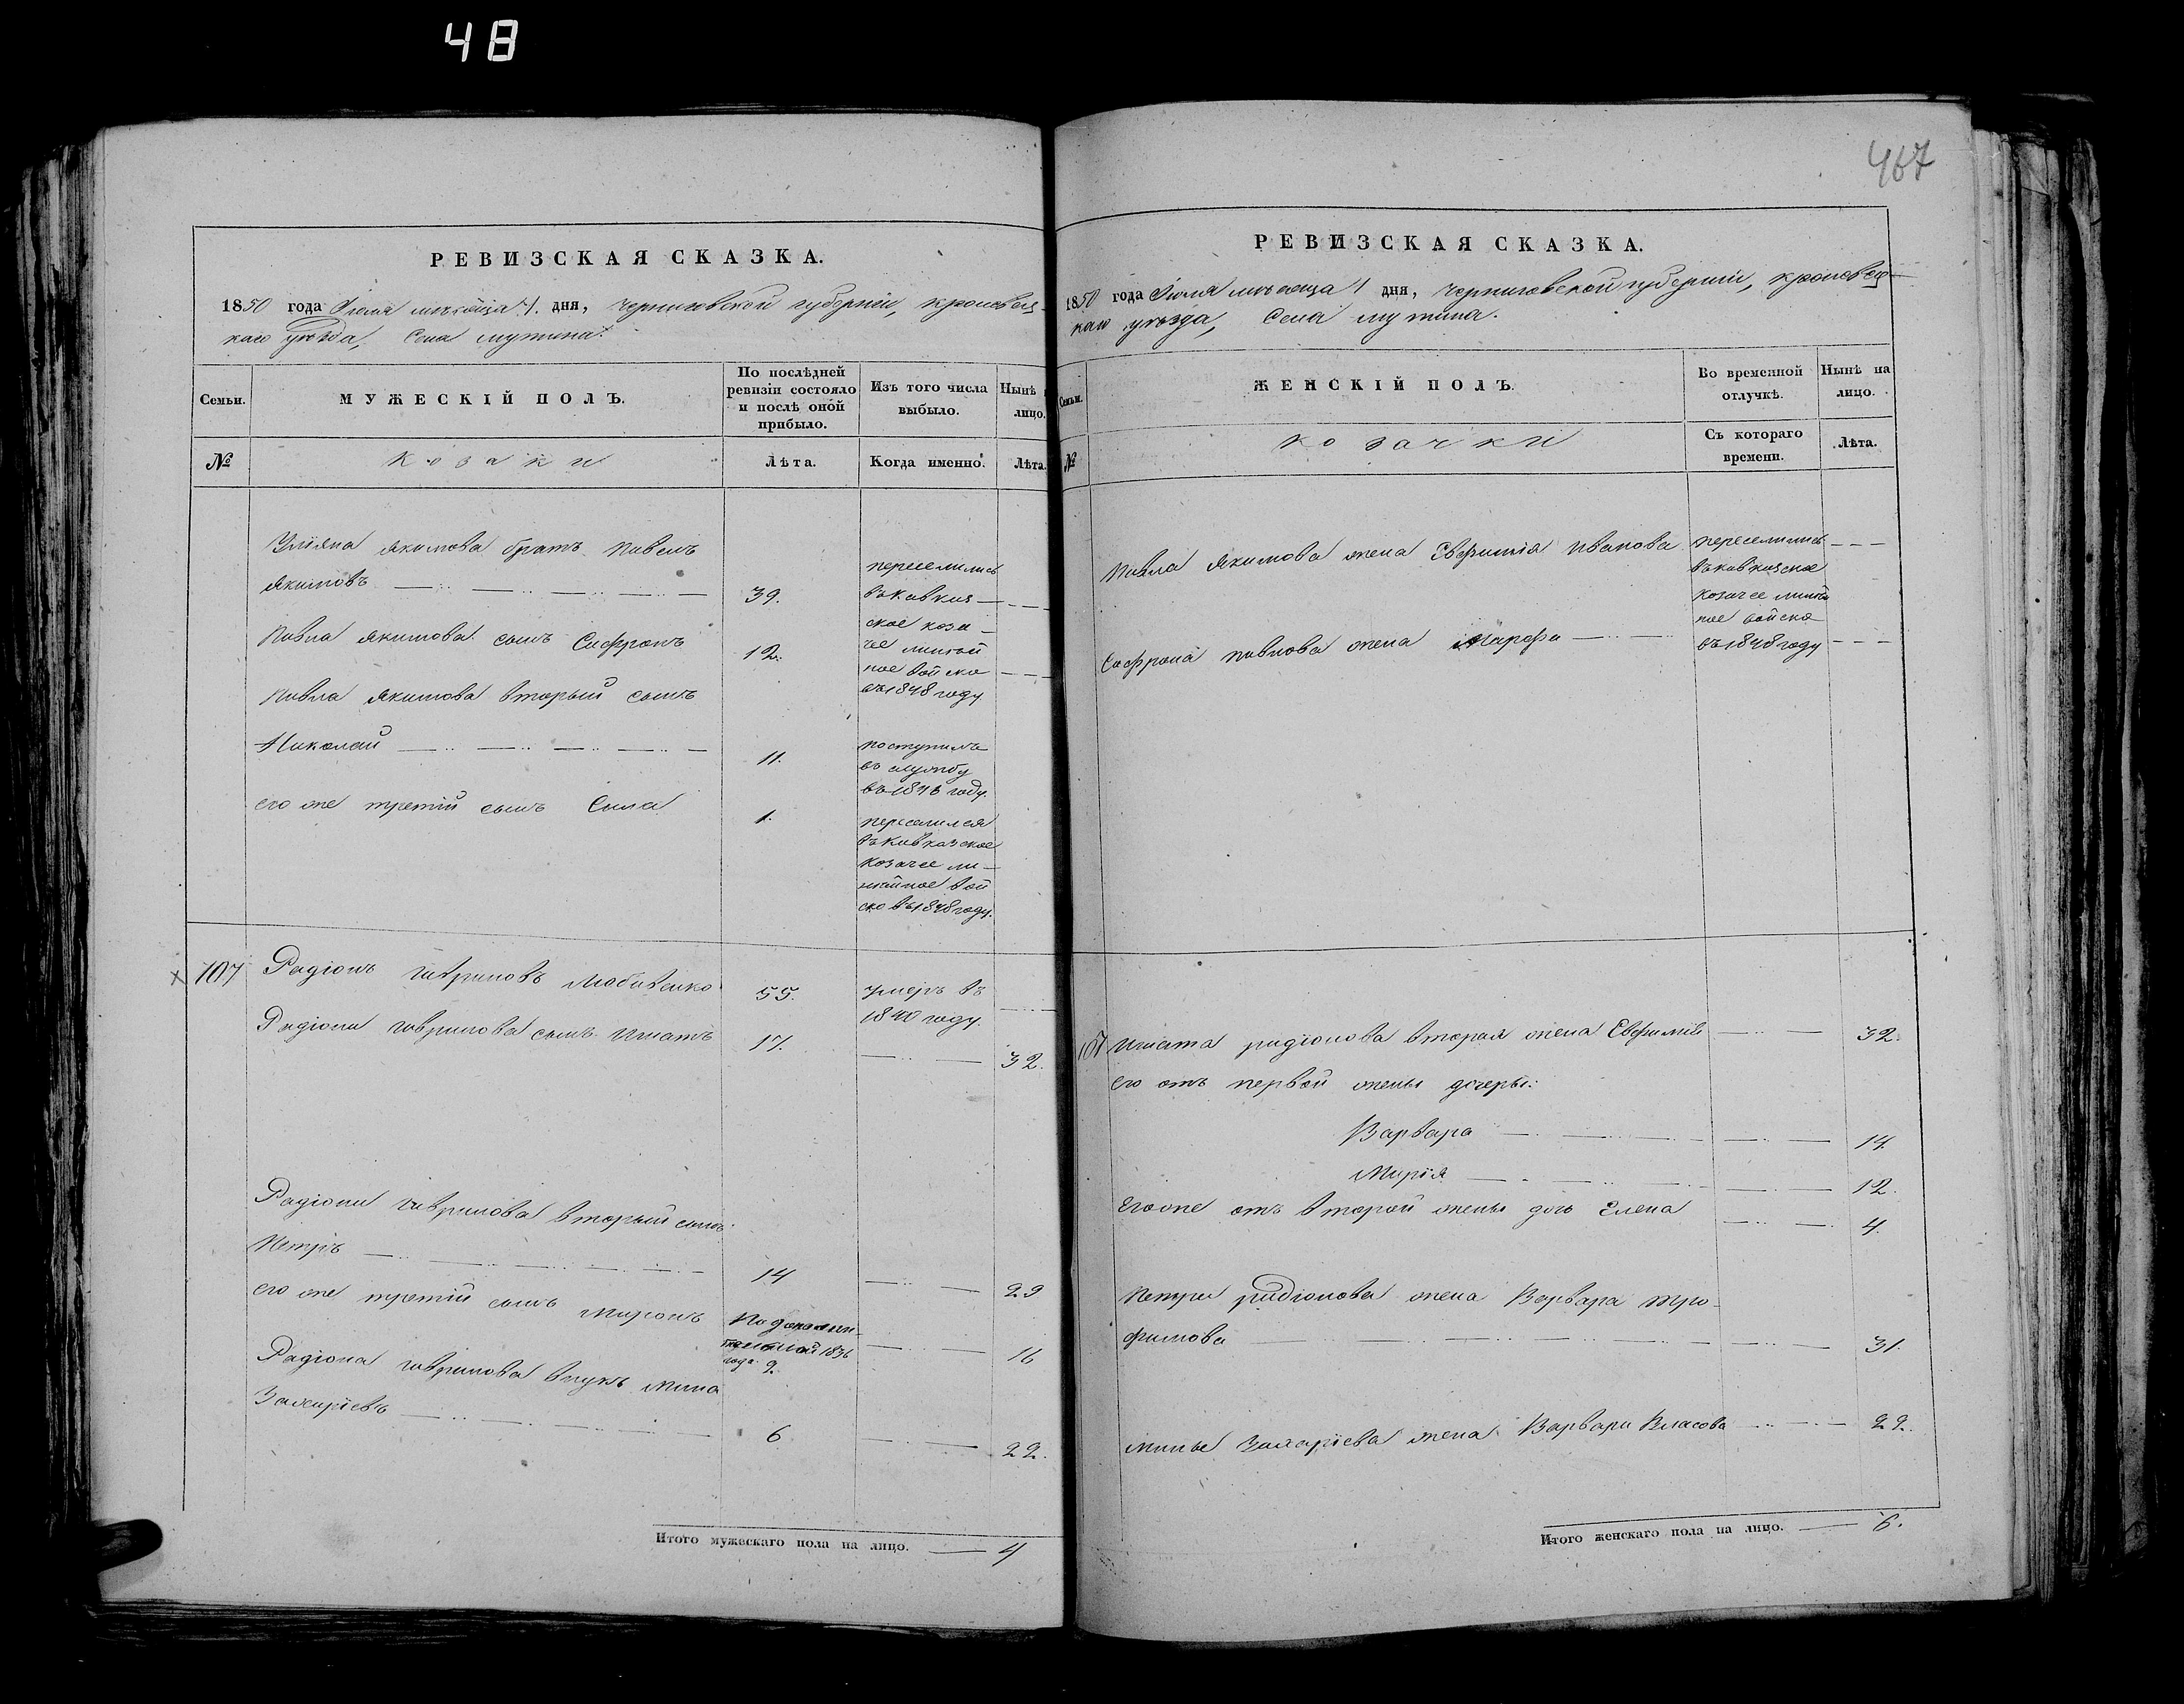 48
467
РЕВИЗСКАЯ СКАЗКА.
1850 года Июля мѣсяца 1 дня, черниговской губерніи, кролевец-
каго уезда, Села мутина.
Семьи.
МУЖЕСКІЙ ПОЛЪ.
По послѣдней
ревизіи состояло
и послѣ оной
прибыло.
Изъ того числа
выбыло.
Нынѣ
лицо.
№
козаки
Лѣта.
Когда именно.
Лѣта.
Уліяна якимова братъ павелъ
якимовъ 39.
переселились
въ кавказ
ское коза-
чее линѣй
ное войско
въ 1848 году.
Павла якимова сынъ Сафронъ 12.
Павла якимова вторый сынъ
Николай 11.
поступилъ
въ службу
въ 1846 году.
его же третій сынъ Сила 1.
переселился
въ кавказское
козачее ли-
нѣйное вой
ско въ 1848 году.
107 Радіонъ гавриловъ Любивенко 55. умеръ въ
1840 году.
Радіона гаврилова сынъ Игнатъ 17. 32.
Радіона гаврилова вторый сынъ
Петръ 14 29
его же третій сынъ миронъ
по дополни-
тельной 1836
года. 2. 16
Радіона гаврилова внукъ мина
Захаріевъ 6. 22.
Итого мужескаго пола на лицо. 4
РЕВИЗСКАЯ СКАЗКА.
1850 года Июля мѣсяца 1 дня, черниговской губерніи, кролевец-
каго уѣзда, Села мутина.
Семьи.
ЖЕНСКІЙ ПОЛЪ.
Во временной
отлучкѣ.
Нынѣ на
лицо.
№
козачки
Съ котораго
времени.
Лѣта.
Павла якимова жена Евфимія иванова
переселились
въ кавказское
козачее линѣй
ное войско
въ 1848 году
Сафрона павлова жена Марфа
107 Игната радіонова вторая жена Евфимія 32.
его отъ первой жены дочеры:
Варвара 14.
Марія 12.
Его же отъ второй жены дочь Елена 4.
Петра радіонова жена Варвара тро-
фимова 31.
мины Захаріева жена Варвара Власова 22.
Итого женскаго пола на лицо. 6.